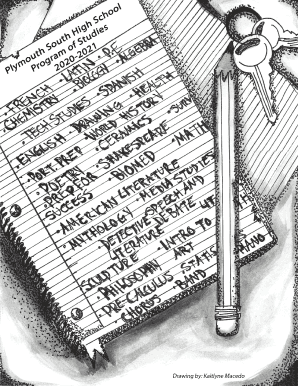 Plymouth South High School
Program of Studies
2020-2021
• FRENCH • LATIN • P.E
CHEMISTRY • BIOLOGY • ALGEBRA
• TECH STUDIES • SPANISH
ENGLISH • DRAWING • HEALTH
• PORT PREP • WORLD HISTORY
• POETRY • CERAMICS
• PREP FOR SUCCESS • SHAKESPEARE • MATH
• BIOMED
• AMERICAN LITERATURE
MYTHOLOGY • MEDIA STUDIES
DETECTIVE LITERATURE • SPEECH AND DEBATE
SCULPTURE
• PHILOSOPHY • INTRO TO ART
• PRE-CALCULUS • STATS
CHORUS • BAND • PIANO
Drawing by: Kaitlyne Macedo